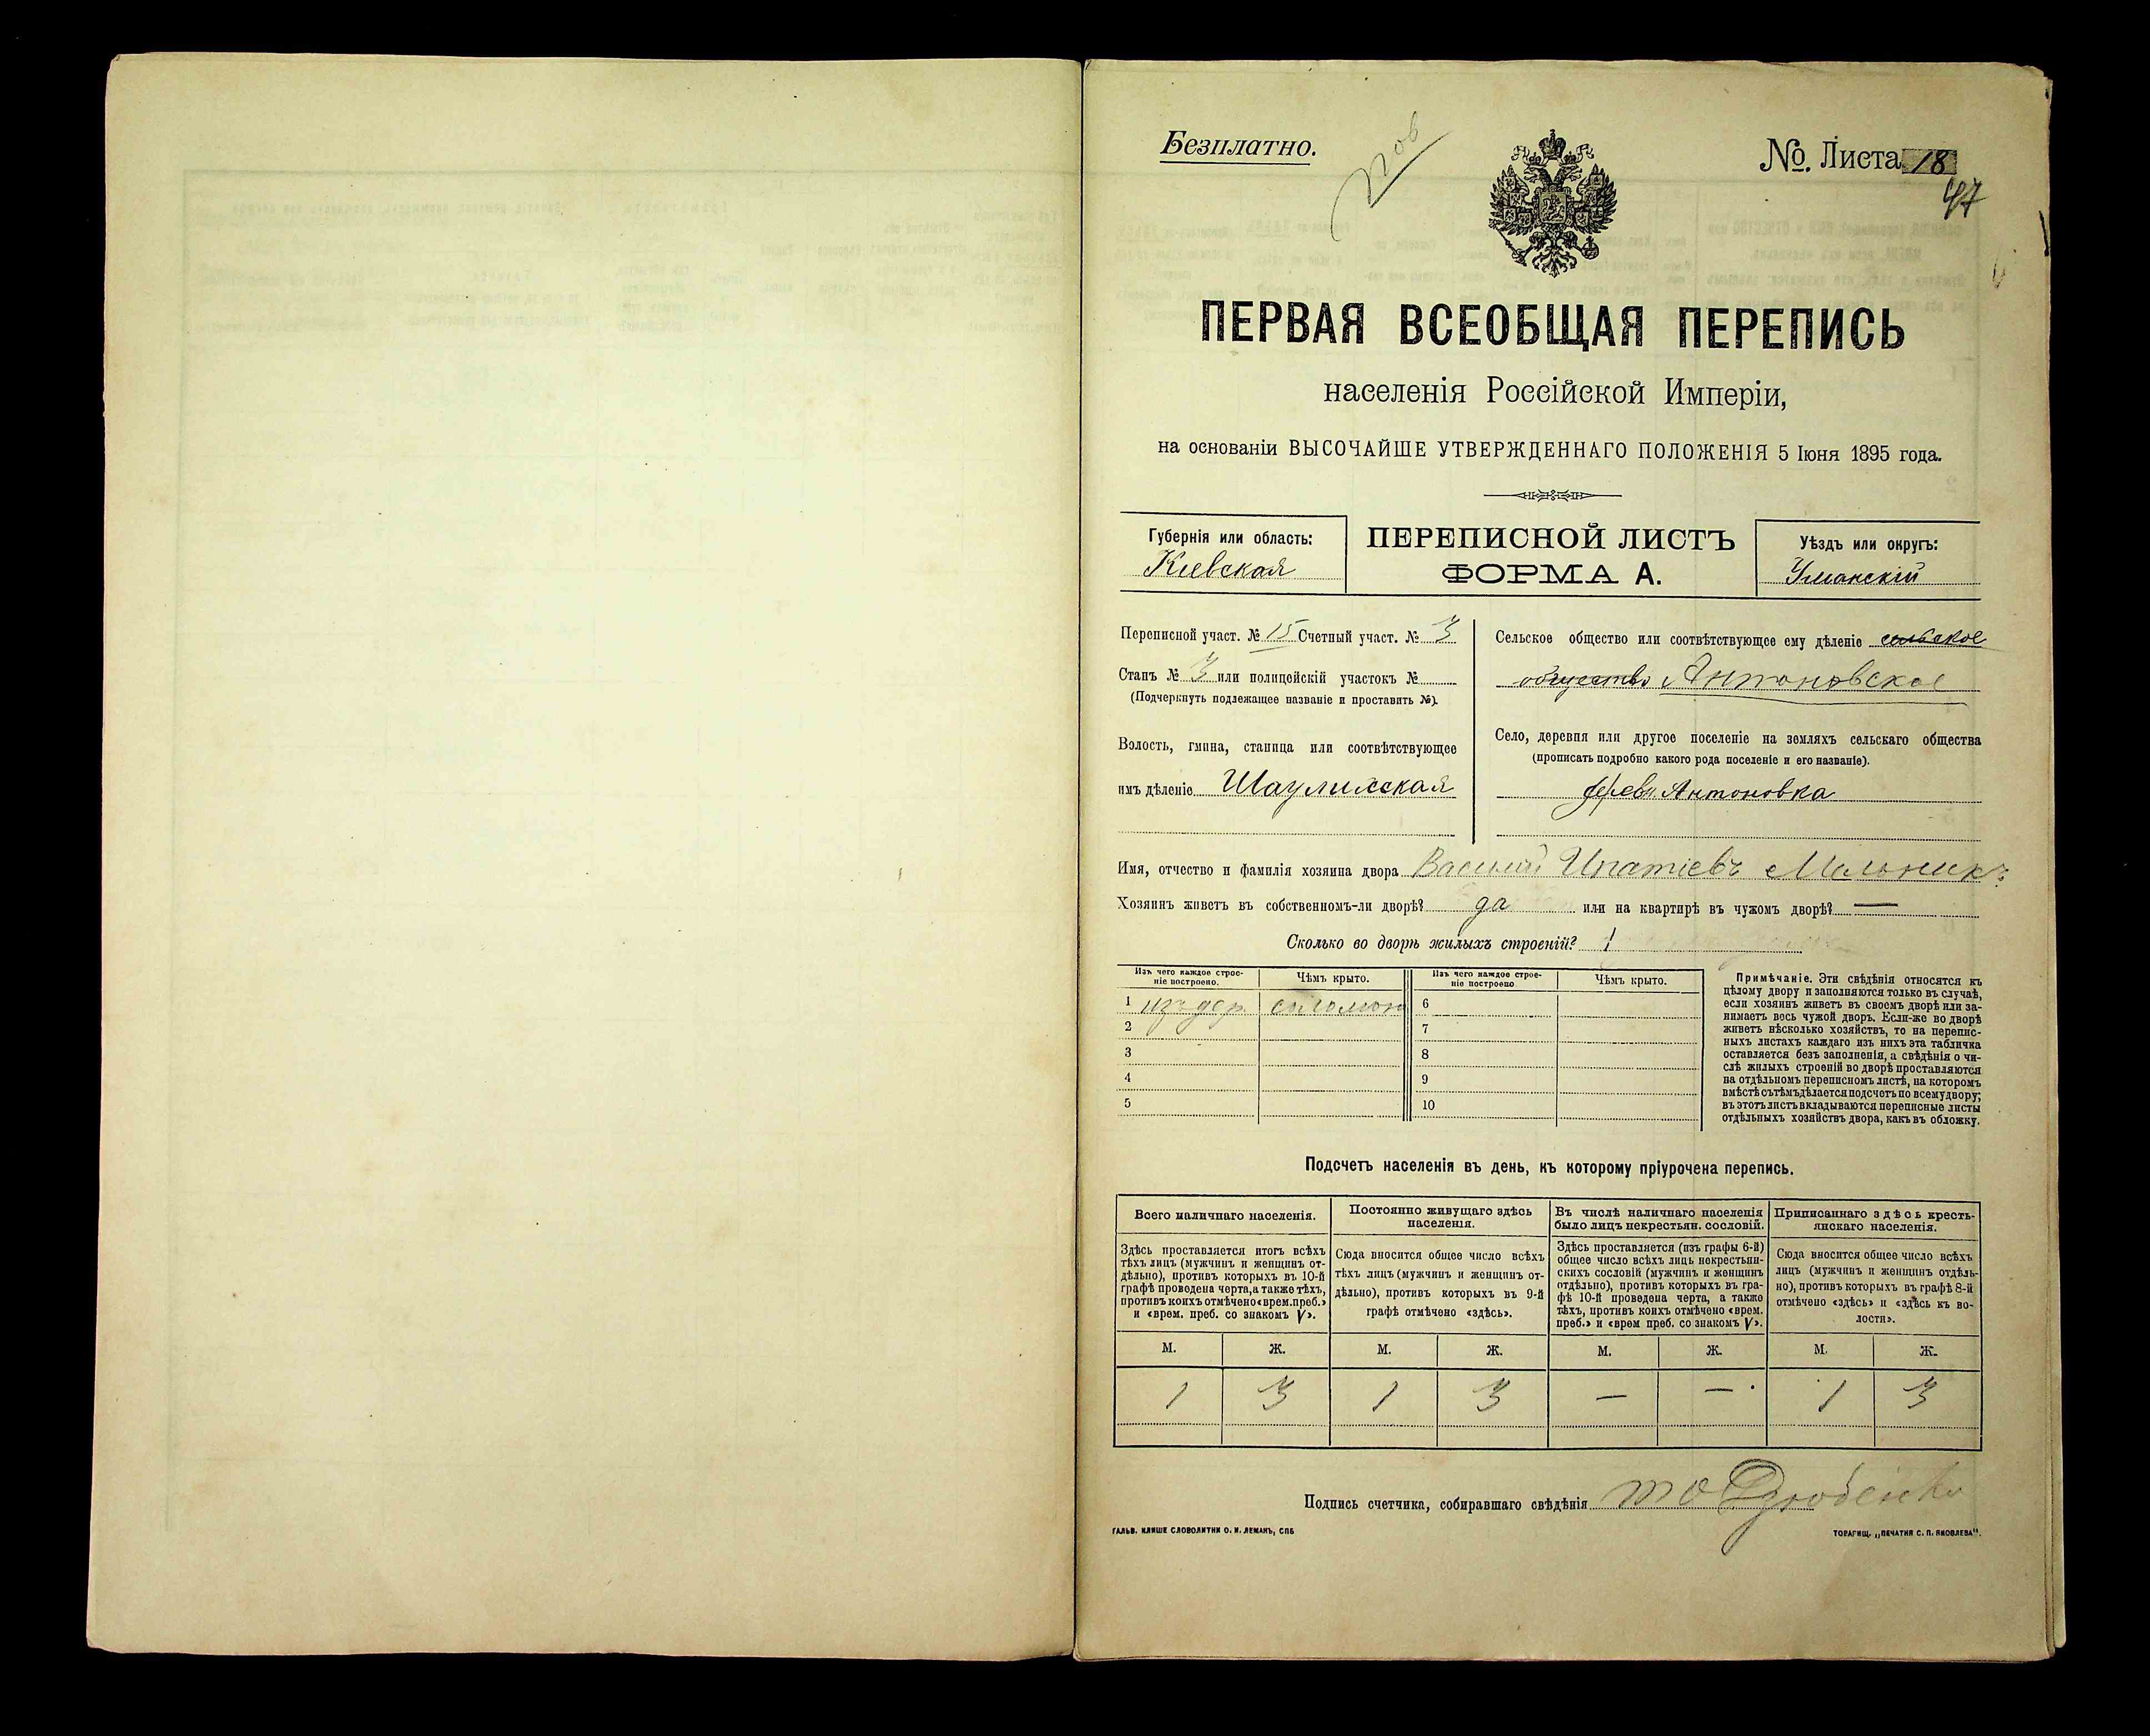 Безплатно.
№ Листа 18
47
ПЕРВАЯ ВСЕОБЩАЯ ПЕРЕПИСЬ
населенія Россійской Имперіи,
на основаніи ВЫСОЧАЙШЕ УТВЕРЖДЕННАГО ПОЛОЖЕНІЯ 5 Іюня 1895 года.
Губернія или область:
Кіевская
ПЕРЕПИСНОЙ ЛИСТЪ
ФОРМА А.
Уѣздъ или округъ:
Уманскій
Переписной участ. № 15 Счетный участ. № 3
Станъ № 3 или полицейскій участокъ №
(Подчеркнуть подлежащее названіе и проставить №).
Волость, гмина, станица или соотвѣтствующее
имъ дѣленіе
Сельское общество или соотвѣтствующее ему дѣленіе сельское
общество Антоновское
Село, деревня или другое поселеніе на земляхъ сельскаго общества
(прописать подробно какого рода поселеніе и его названіе).
дерев. Антоновка
Имя, отчество и фамилія хозяина двора Василій Ипатіевъ Мельникъ
Хозяинъ живетъ въ собственномъ-ли дворѣ? да или на квартирѣ въ чужомъ дворѣ? —
Сколько во дворѣ жилыхъ строеній? 1
Изъ чего каждое строе-
ніе построено.
Чѣмъ крыто.
Изъ чего каждое строе-
ніе построено
Чѣмъ крыто.
1 изъ дер. соломою 6
2 7
3 8
4 9
5 10
Примѣчаніе. Эти свѣдѣнія относятся къ
цѣлому двору и заполняются только въ случаѣ,
если хозяинъ живетъ въ своемъ дворѣ или за-
нимаетъ весь чужой дворъ. Если-же во дворѣ
живетъ нѣсколько хозяйствъ, то на перепис-
ныхъ листахъ каждаго изъ нихъ эта табличка
оставляется безъ заполненія, а свѣдѣнія о чи-
слѣ жилыхъ строеній во дворѣ проставляются
на отдѣльномъ переписномъ листѣ, на которомъ
вмѣстѣ съ тѣмъ дѣлается подсчетъ по всему двору;
въ этотъ листъ вкладываются переписные листы
отдѣльныхъ хозяйствъ двора, какъ въ обложку.
Подсчетъ населенія въ день, къ которому пріурочена перепись.
Всего наличнаго населенія.
Здѣсь проставляется итогъ всѣхъ
тѣхъ лицъ (мужчинъ и женщинъ от-
дѣльно), противъ которыхъ въ 10-й
графѣ проведена черта, а также тѣхъ,
противъ коихъ отмѣчено «врем. преб.»
и «врем. преб. со знакомъ V».
Постоянно живущаго здѣсь
населенія.
Сюда вносится общее число всѣхъ
тѣхъ лицъ (мужчинъ и женщинъ от-
дѣльно), противъ которыхъ въ 9-й
графѣ отмѣчено «здѣсь».
Въ числѣ наличнаго населенія
было лицъ некрестьян. сословій.
Здѣсь проставляется (изъ графы 6-й)
общее число всѣхъ лицъ некрестьян-
скихъ сословій (мужчинъ и женщинъ
отдѣльно), противъ которыхъ въ гра-
фѣ 10-й проведена черта, а также
тѣхъ, противъ коихъ отмѣчено «врем.
преб.» и «врем преб. со знакомъ V».
Приписаннаго здѣсь кресть-
янскаго населенія.
Сюда вносится общее число всѣхъ
лицъ (мужчинъ и женщинъ отдѣль-
но), противъ которыхъ въ графѣ 8-й
отмѣчено «здѣсь» и «здѣсь къ во-
лости».
М. Ж. М. Ж. М. Ж. М. Ж.
1 3 1 3 — — 1 3
Подпись счетчика, собиравшаго свѣдѣнія
ГАЛЬВ. КЛИШЕ СЛОВОЛИТНИ О. И. ЛЕМАНЪ, СПБ
ТОВАРИЩ. „ПЕЧАТНЯ С. П. ЯКОВЛЕВА".